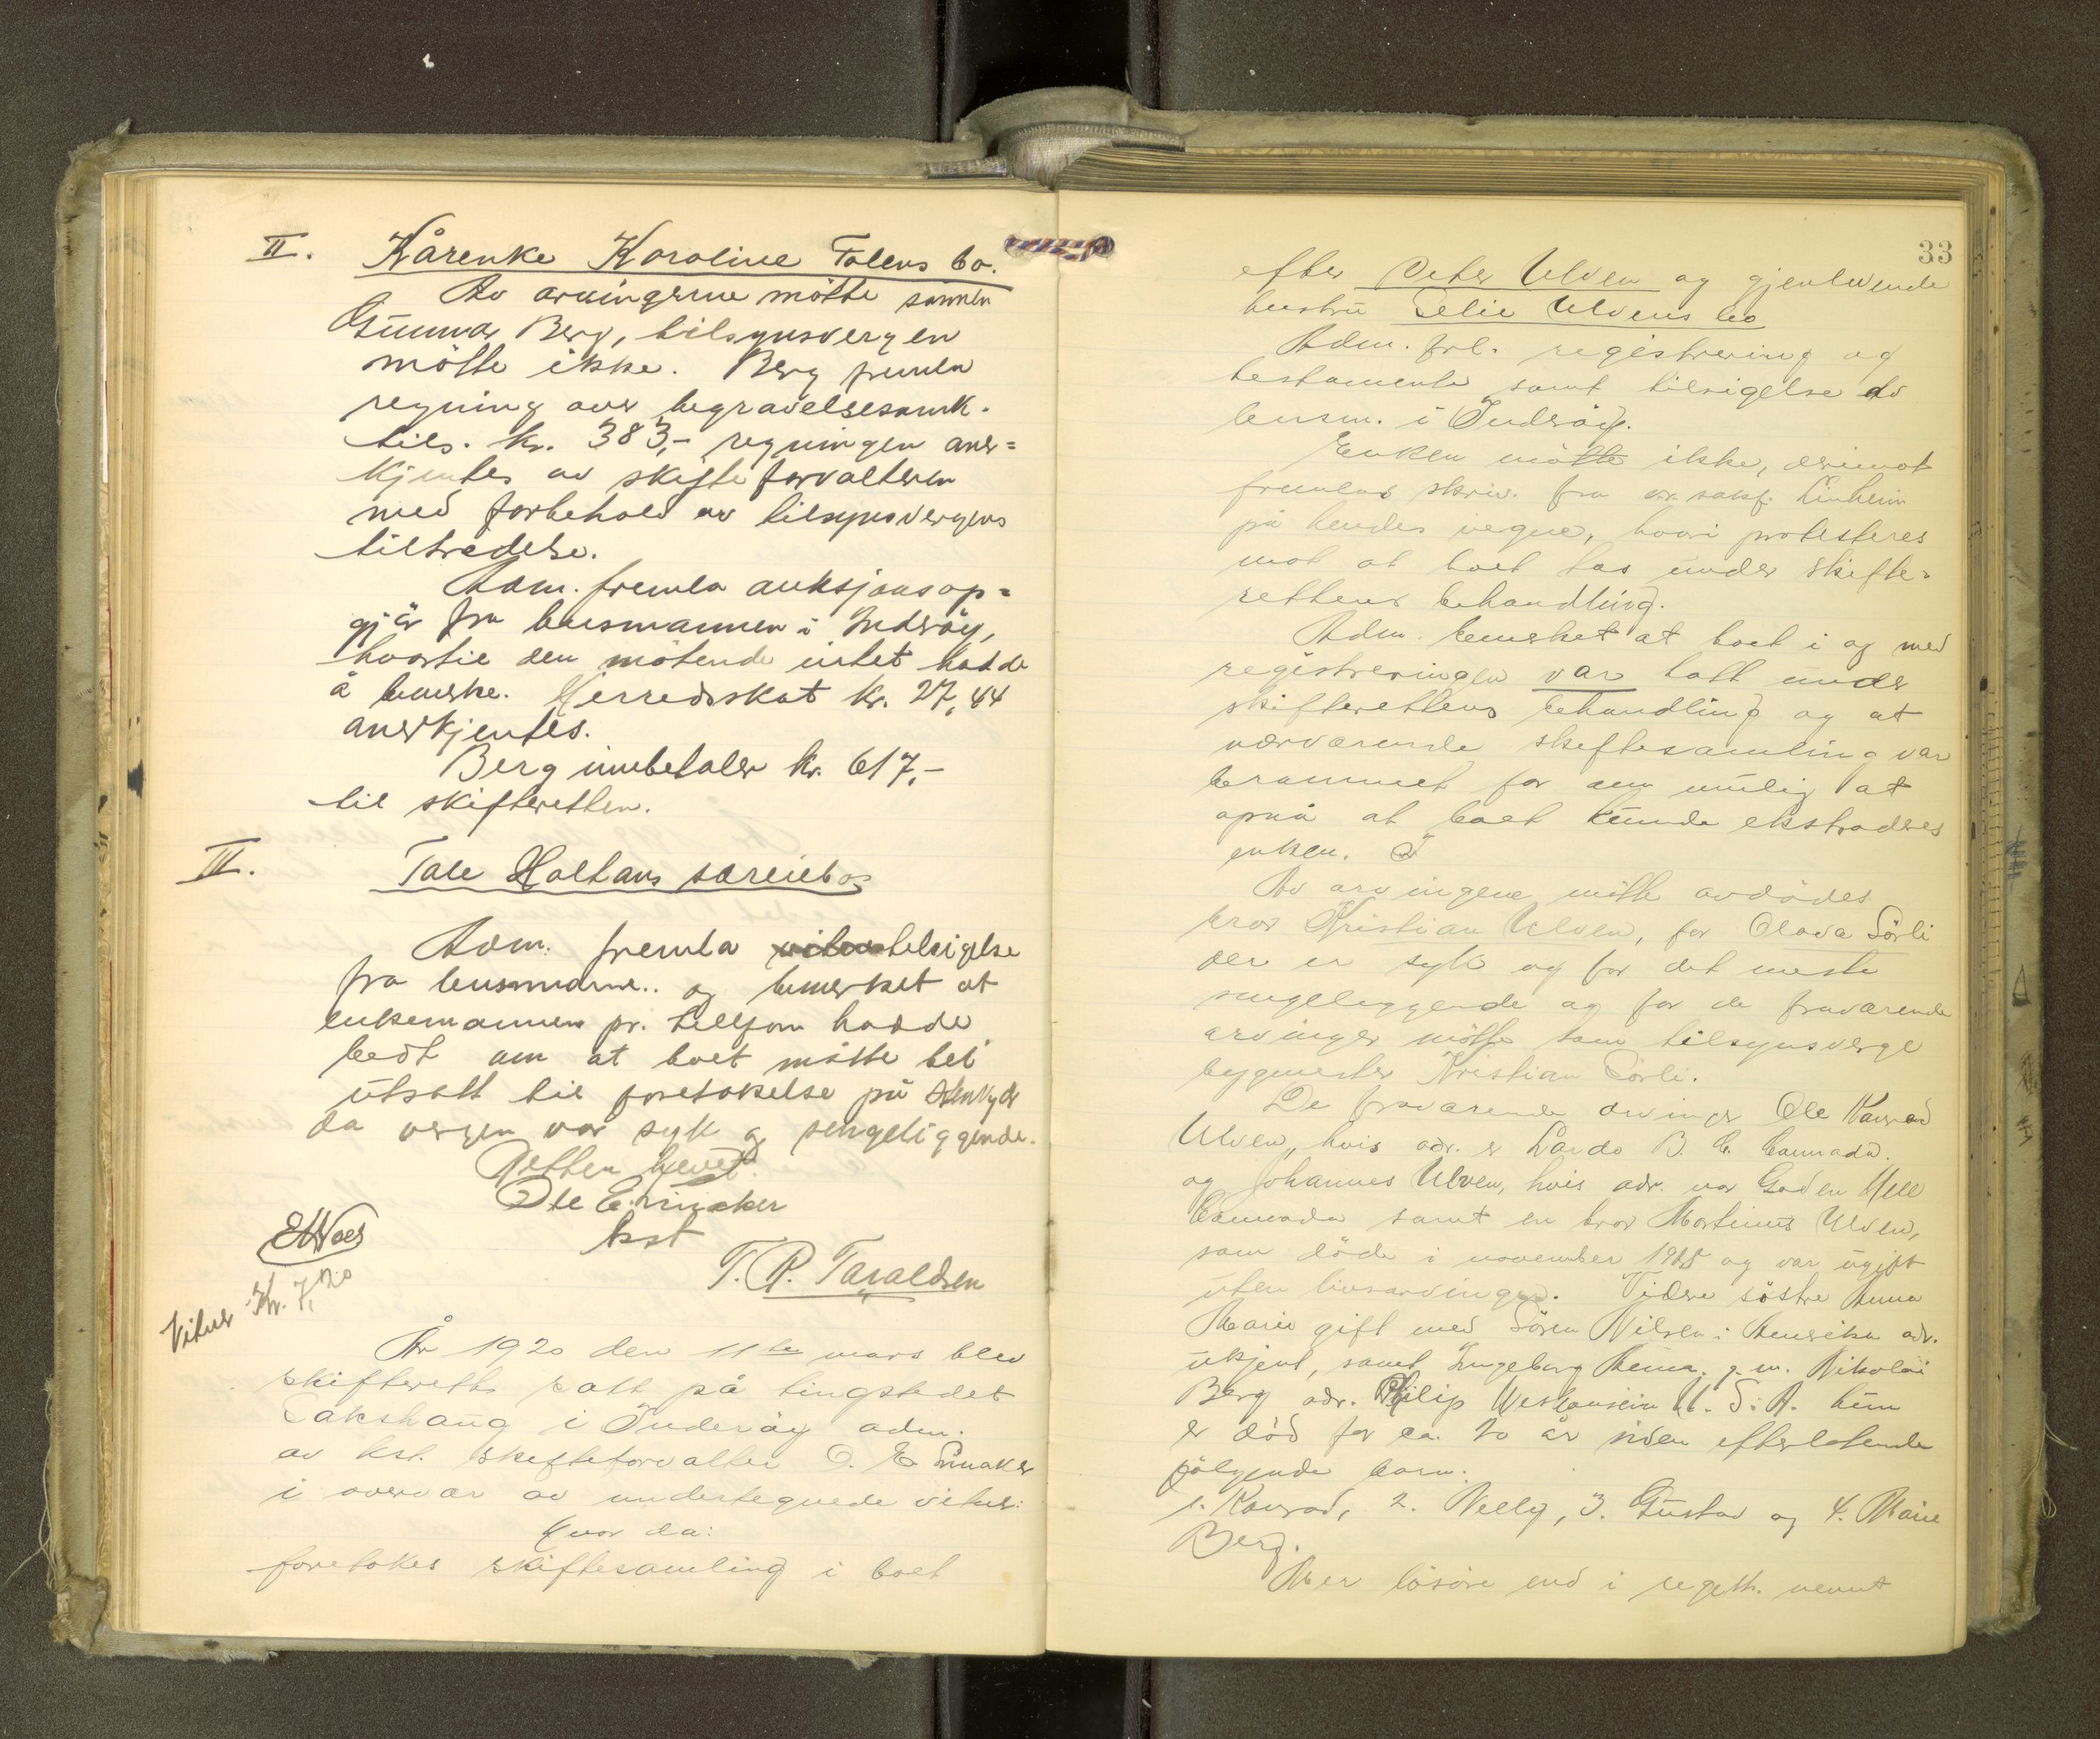 II. Kårenke Karoline Folens bo.
Av arvingerne møtte sønnen
Gunnar Berg, tilsynsvergen
møtte ikke. Berg fremla
regning over begravelsesomk.
tils. kr. 383,- regningen aner=
kjentes av skifteforvalteren
med forbehold av tilsynsvergens
tiltredelse.
Adm. fremla auksjonsop=
gjør fra lensmannen i Inderøy,
hvortil den møtende intet hadde
å bemerke. Herredsskat kr. 27,44
anerkjentes.
Berg innbetaler kr. 617,-
til skifteretten.
III. Tale Haltans særeiebo
Adm. fremla tilsigelse
fra lensmann.. og bemerket at
enkemannen pr. telefon hadde
bedt om at boet måtte bli
utsatt til foretakelse på
da vergen var syk og sengeliggende.
Retten hevet.
Ole E. Smaker
kst
EHVoes
T. R. Taraldsen
Vitner Kr. 7,20
År 1920 den 11te mars blev
skifterett satt på tingstedet
Sakshaug i Inderøy adm.
av kst. skifteforvalter O. E. Smaker
i overvær av undertegnede vitner:
Hvor da:
foretokes skiftesamling i boet
33
efter Peter Ulven og gjenlevende
hustru Selie Ulvens bo
Adm. frl. registrering og
testamente samt tilsigelse av
lensm. i Inderøy.
Enken møtte ikke, derimot
fremlas skriv. fra o.r.sakf. Linheim
på hendes vegne, hvori protesteres
mot at boet tas under skifte=
rettens behandling.
Adm. bemerket at boet i og med
registreringen var tatt under
skifterettens behandling og at
nærværende skiftesamling var
berammet for om mulig at
opnå at boet kunde ekstraderes
enken.
Av arvingene møtte avdødes
bror Kristian Ulven, for Olava Sørli
der er syk og for det meste
sengeliggende og for de fraværende
arvinger møtte som tilsynsverge
bygmester Kristian Sørli.
De fraværende arvinger Ole Konrad
Ulven, hvis adr. er Lardo B. C. Cannada.
og Johannes Ulven, hvis adr. var Goden Hill
Cannada samt en bror Martinus Ulven,
som døde i november 1915 og var ugift
uten livsarvinger. Videre søstre Anna
Marie gift med Søren Nilsen i Amerika adr.
ukjent, samt Ingeborg Anna, g. m. Nikolai
Berg adr. Philip U. S. A. hun
er død for ca. 20 år siden efterlatende
følgende barn:
1. Konrad, 2. Nelly, 3. Gustav og 4. Marie
Berg.
Mer løsøre end i regstr. nevnt